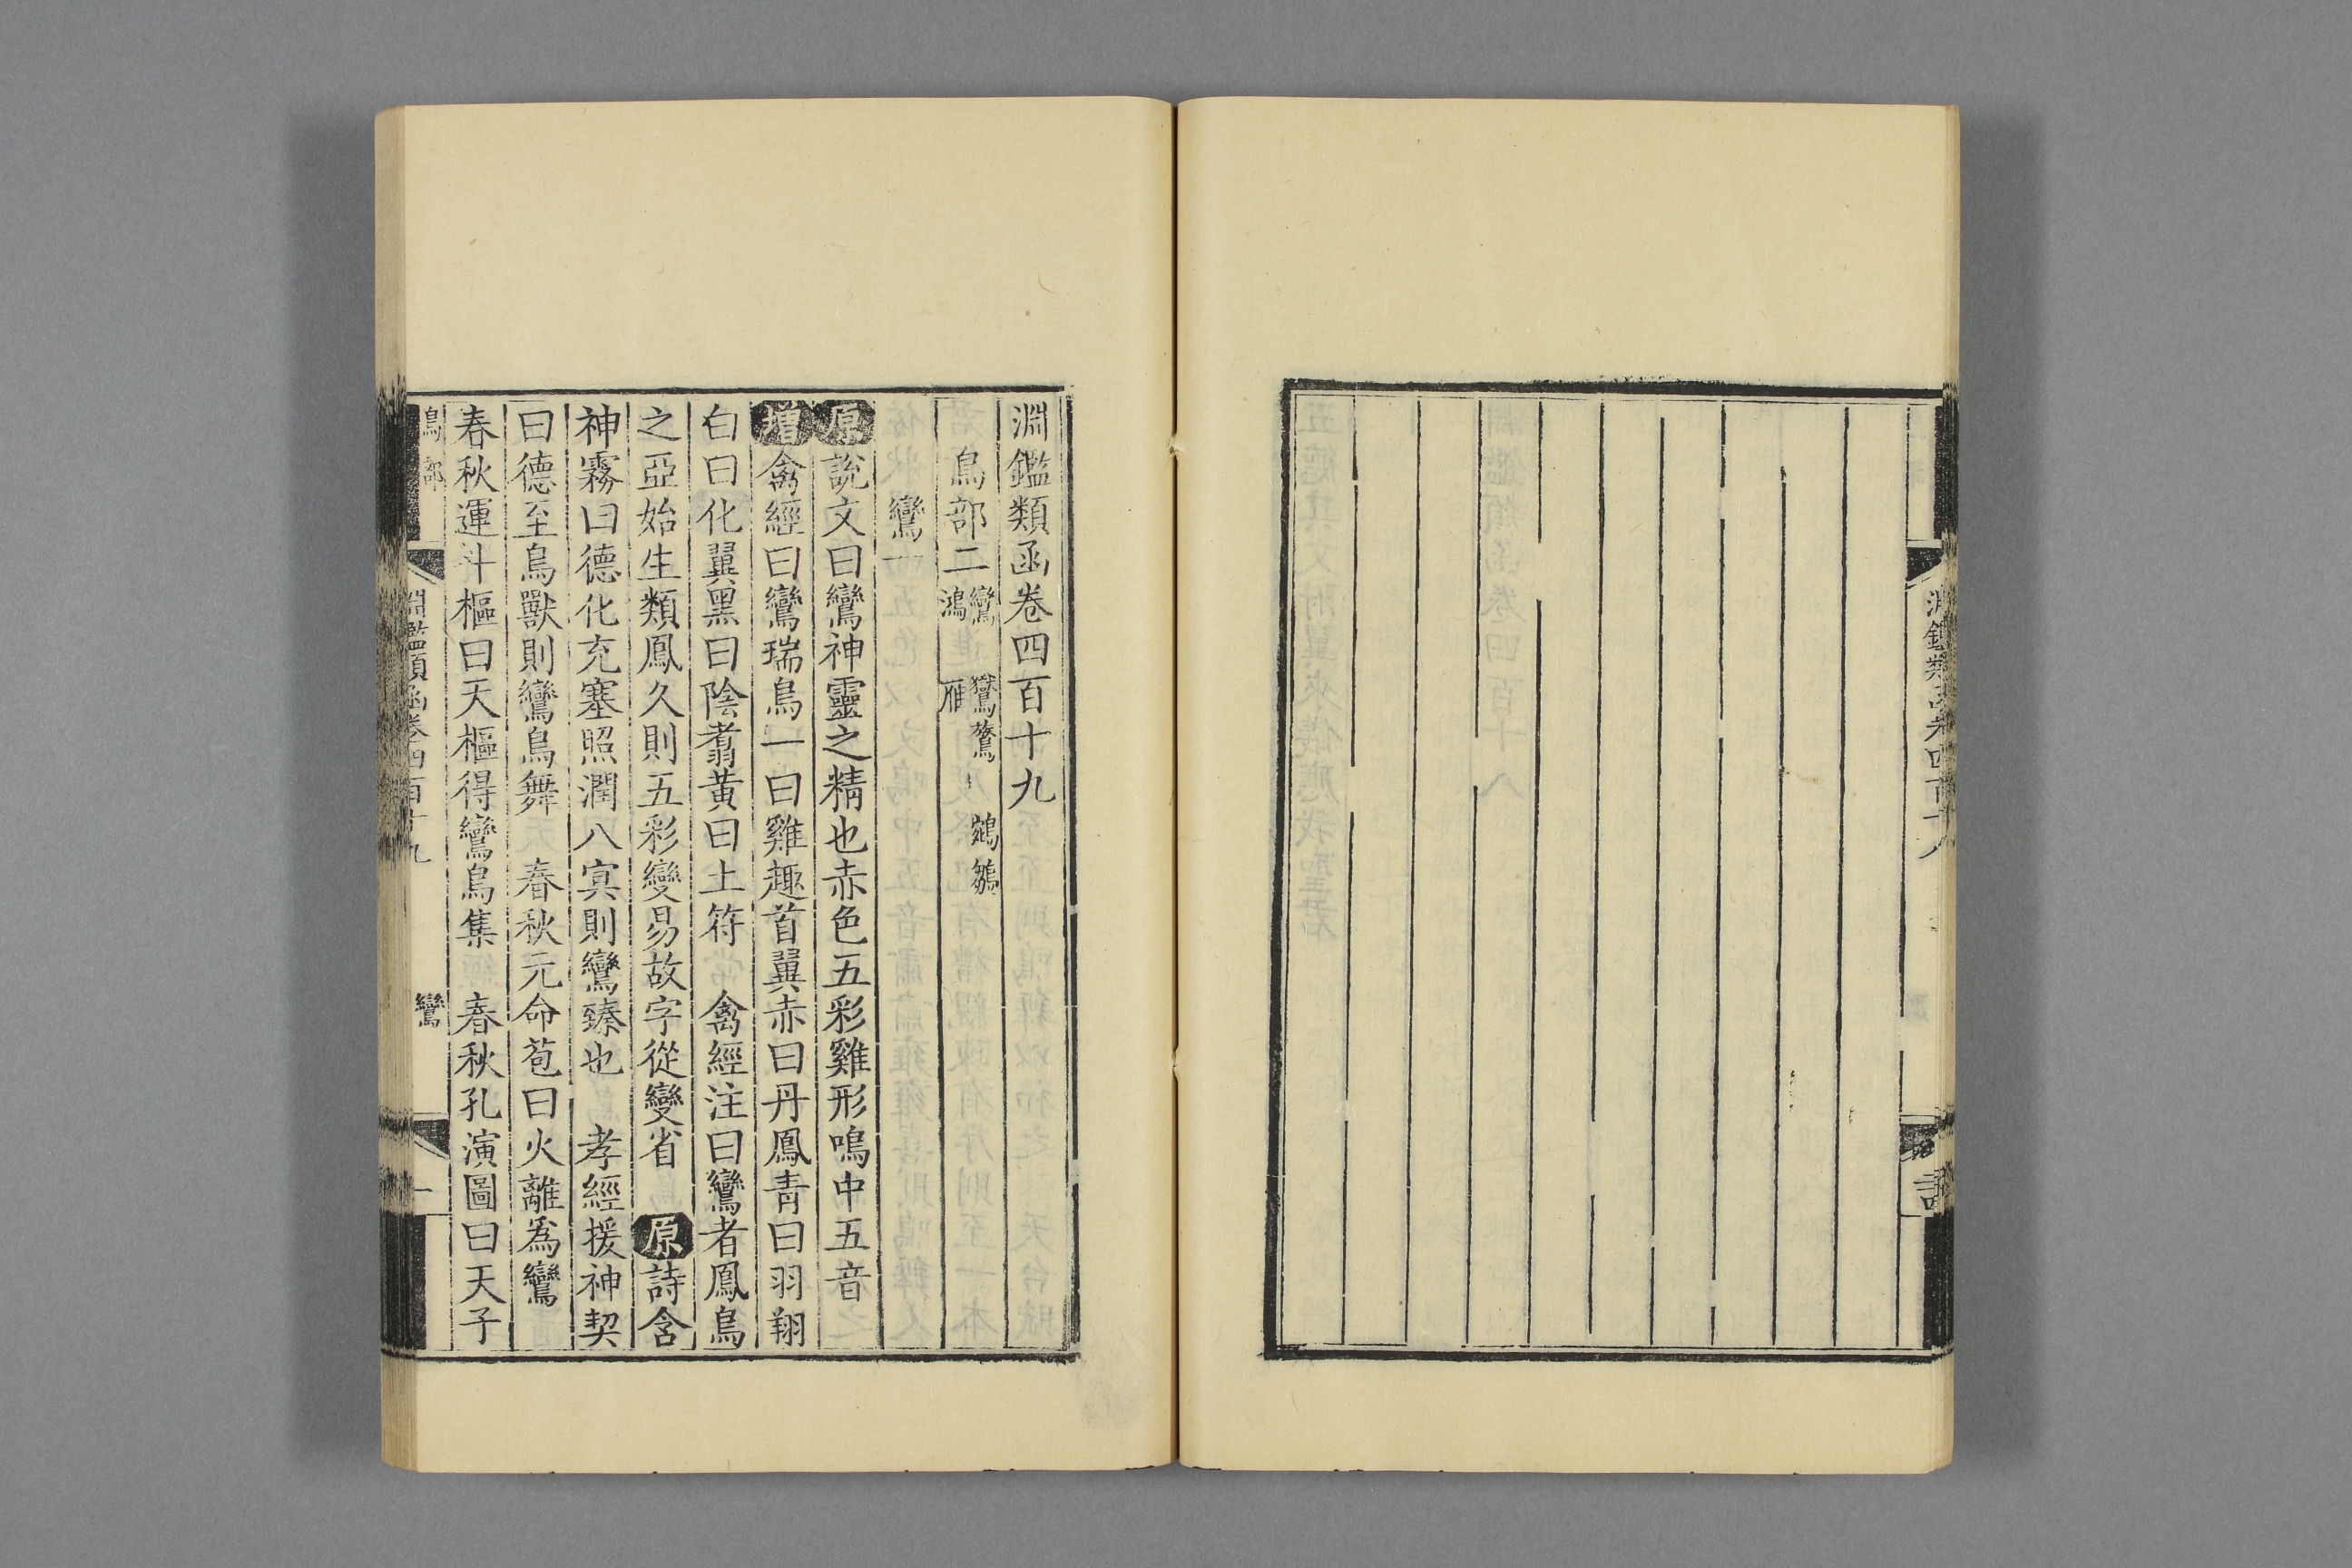 淵鑑類函卷四百十九
鳥部二 鸞 鸑鷟 鵷鶵 鴻 雁
鸞一
原說文曰鸞神靈之精也赤色五彩雞形鳴中五音
增禽經曰鸞瑞鳥一曰雞趣首翼赤曰丹鳳青曰羽翔
白曰化翼黑曰陰翥黃曰土符 禽經注曰鸞者鳳鳥
之亞始生類鳳久則五彩變易故字從變省 原詩含
神霧曰德化充塞照潤八寞則鸞臻也 孝經援神契
曰德至鳥獸則鸞鳥舞 春秋元命苞曰火離爲鸞
春秋運斗樞曰天樞得鸞鳥集 春秋孔演圖曰天子
鳥部 淵鑑類函卷四百十九 鸞 一